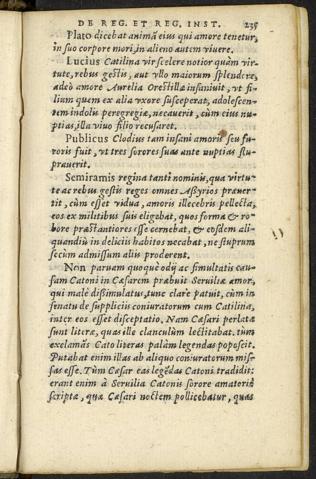 DE REG. ET REG. INST. 235
Plato dicebat animã eius qui amore tenetur,
in suo corpore mori, in alieno autem viuere.
Lucius Catilina vir scelere notior quàm vir-
tute, rebus gestis, aut vllo maiorum splendore,
adeò amore Aurelia Orestilla insaniuit, vt fi-
lium quem ex alia vxore susceperat, adolescen-
tem indolis peregregiæ, necauerit, cùm eius nu-
ptias, illa viuo filio recusaret.
Publicus Clodius tam insani amoris seu fu-
roris fuit, vt tres sorores suas ante nuptias stu-
prauerit.
Semiramis regina tanti nominis, qua virtu-
te ac rebus gestis reges omnes Assyrios præuer-
tit, cùm esset vidua, amoris illecebris pellecta,
eos ex militibus suis eligebat, quos forma & ro-
bore præstantiores esse cernebat, & eosdem ali-
quandiu in deliciis habitos necabat, ne stuprum
secùm admissum aliis proderent.
Non paruam quoque odij ac simultatis cau-
sam Catoni in Cæsarem præbuit Seruiliæ amor,
qui malè dissimulatus, tunc clarè patuit, cùm in
senatu de suppliciis coniuratorum cum Catilina,
inter eos esset disceptatio. Nam Cæsari perlatæ
sunt literæ, quas ille clanculùm lectitabat. tum
exclamãs Cato literas palàm legendas poposcit.
Putabat enim illas ab aliquo coniuratorum mis-
sas esse. Tùm Cæsar eas legẽdas Catoni tradidit:
erant enim à Seruilia Catonis sorore amatoriè
scriptæ, quæ Cæsari noctem pollicebatur, quas